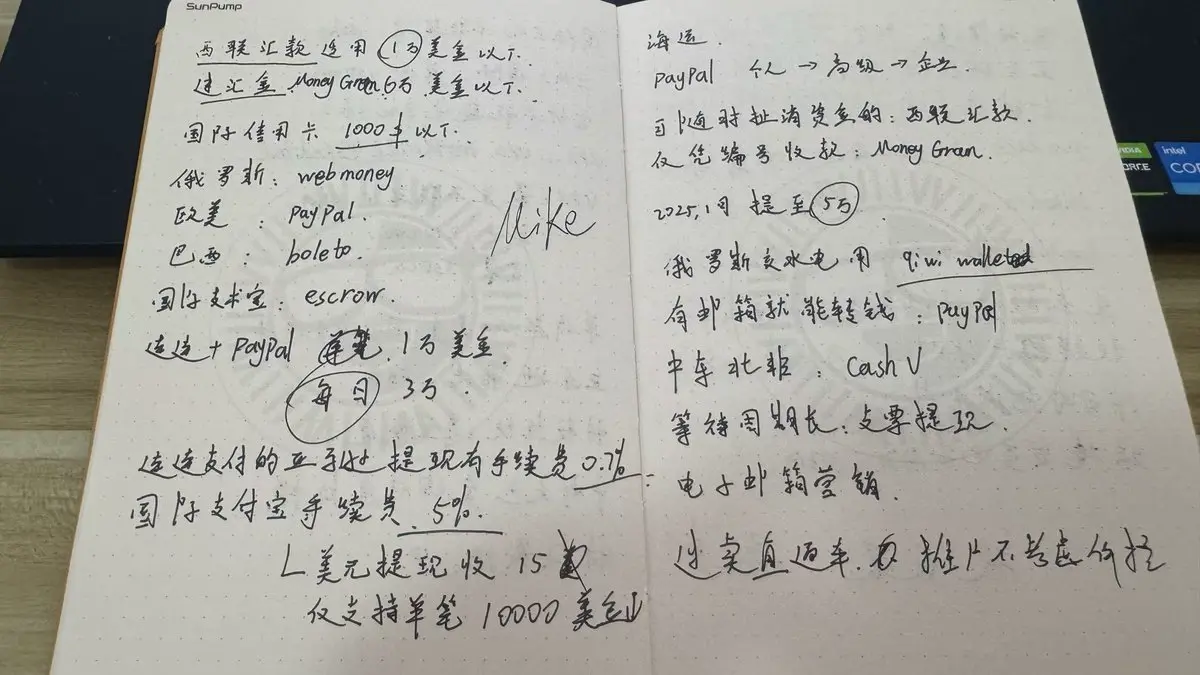 SunPump
西联汇款适用 1万美金以下.
速汇金 Money Gram 6万 美金以下.
国际信用卡 1000$以下.
俄罗斯: webmoney
欧美: paypal.
巴西: boleto.
国际支术宝: escrow.
Mike
连连+PayPal 单笔 1万美金.
每日 3万.
连连支付的亚马逊提现有手续费 0.7%
国际支付宝手续费 5%.
L 美元提现收 15
仅支持单笔 10000 美金
海运.
PayPal 个人→高级→企业.
可随时撤消资金的: 西联汇款.
仅凭编号收款: Money Gram.
2025,1月 提至 5万
俄罗斯交水电用 qiwi wallet
有邮箱就能转钱: paypal
中东北非: Cash U
等待周期长: 支票提现.
电子邮箱营销.
速卖直通车, 推广不考虑
NVIDIA
intel